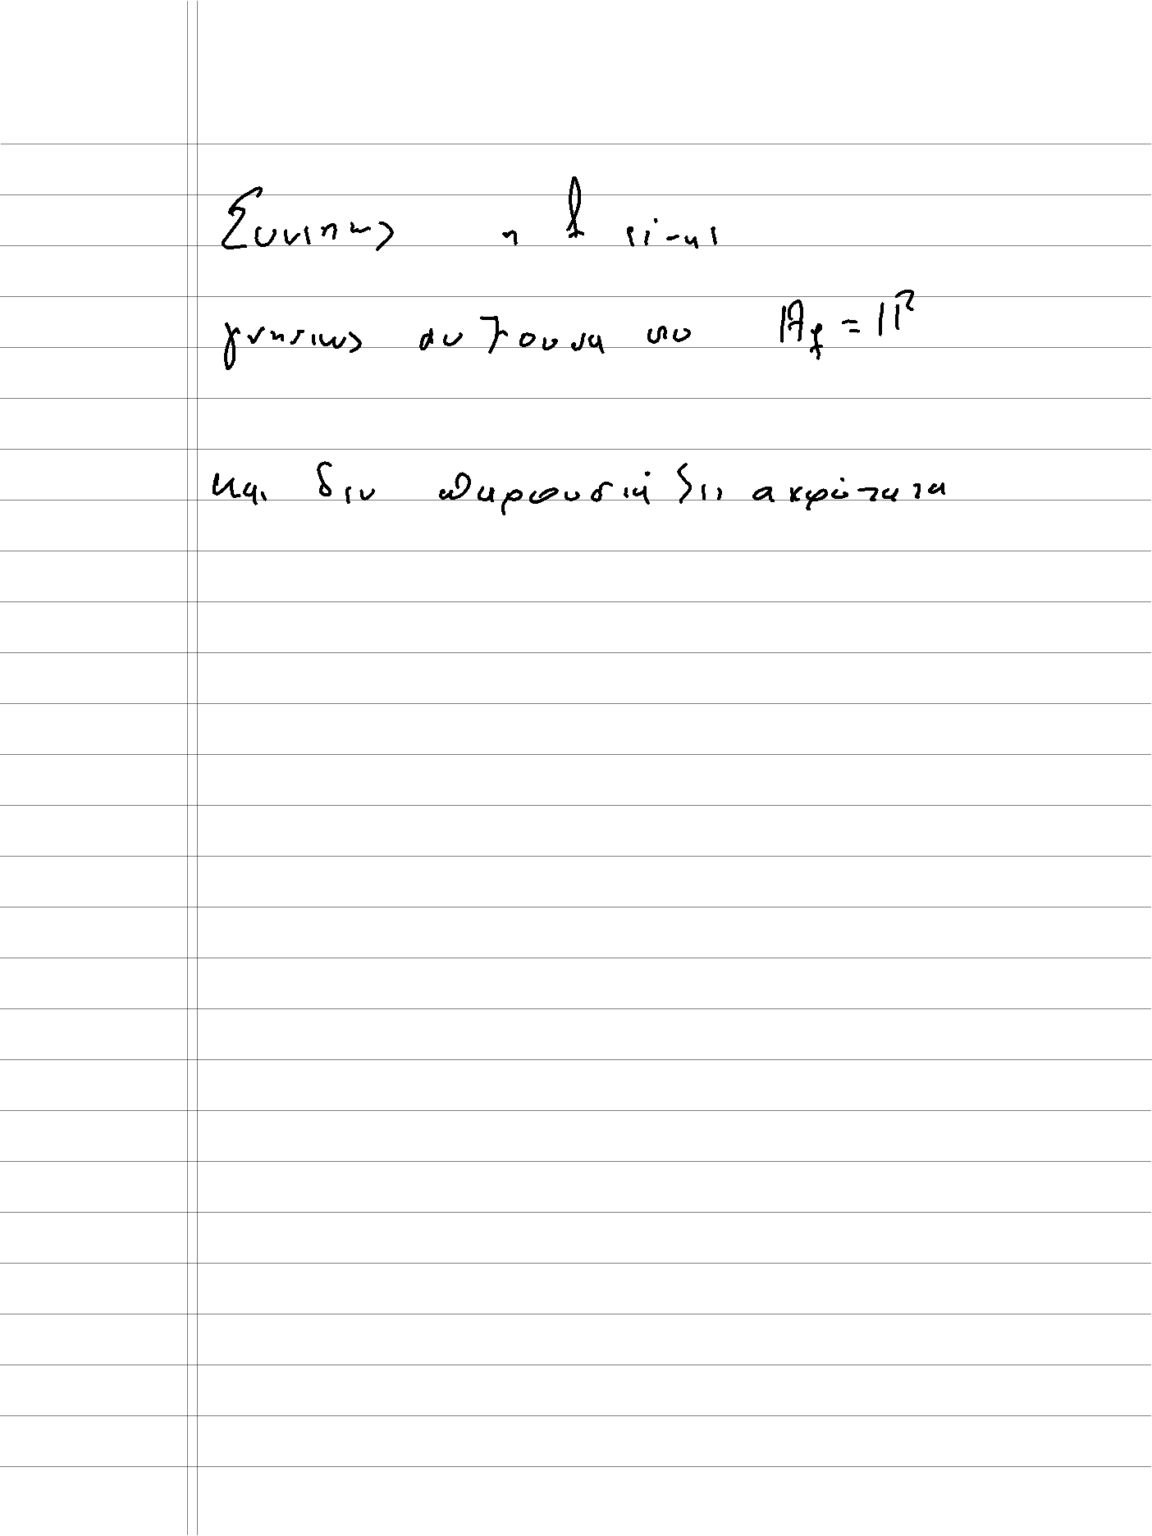 Συνεπως η f είναι
γνησιως αυξουσα στο A_f = ℝ
και δεν παρουσιάζει ακρότατα